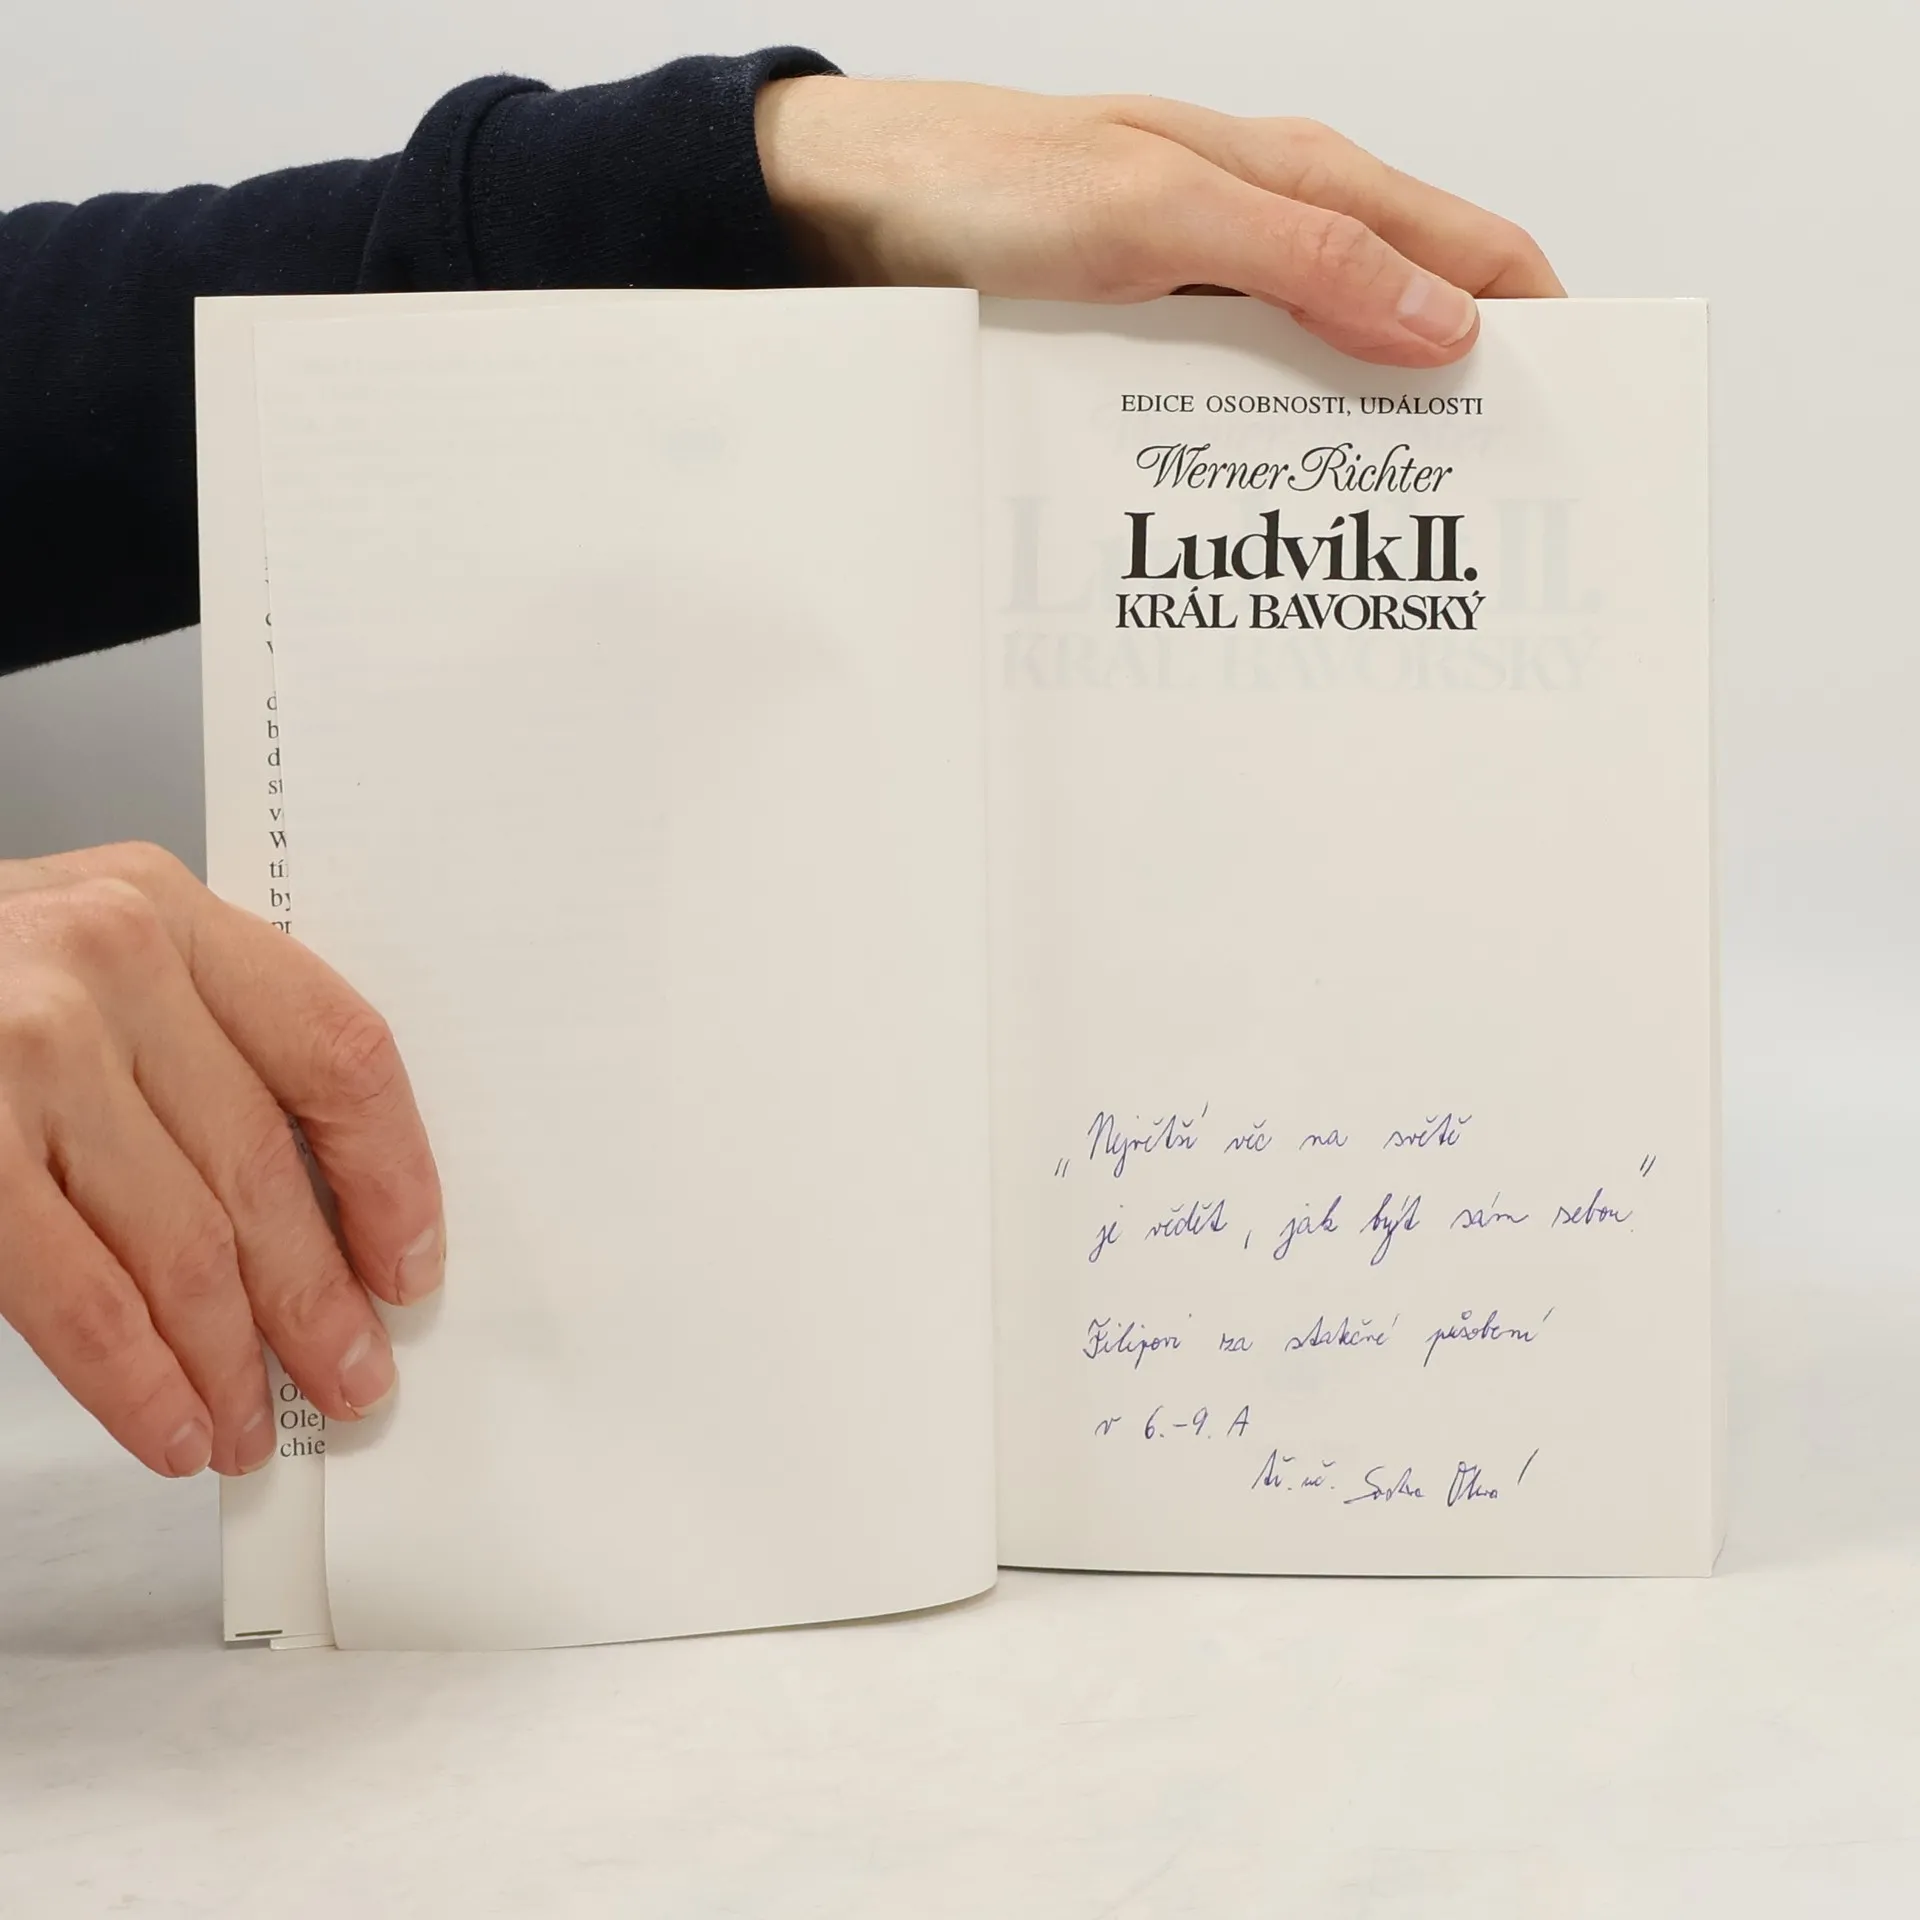 EDICE OSOBNOSTI, UDÁLOSTI
Werner Richter
Ludvík II.
KRÁL BAVORSKÝ
„Největší věc na světě
je vědět, jak být sám sebou."
Filipovi za statečné působení
v 6.-9. A
tř. uč.
d
b
d
st
W
tí
by
Olej
chie